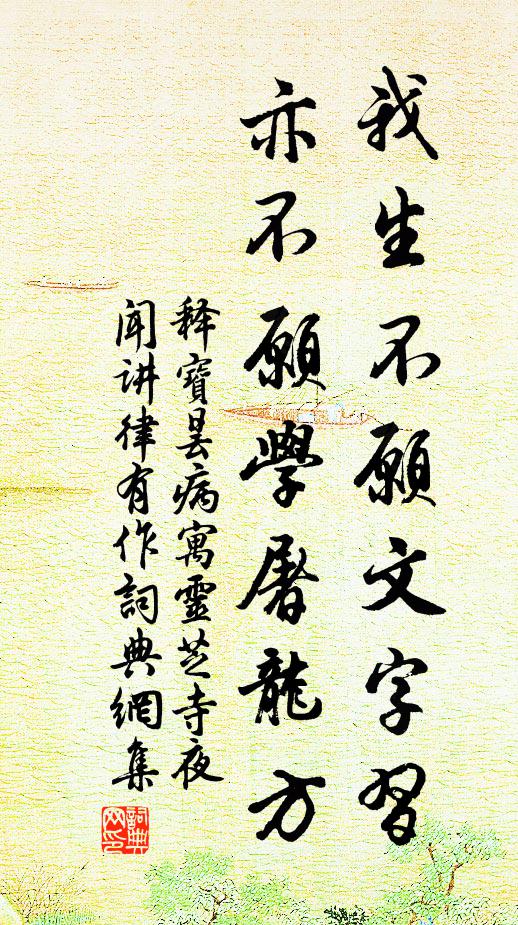 我生不願文字習
亦不願學屠龍方
释寶曇病寓靈芝寺夜
闻讲律有作詞典網集
詞典网印